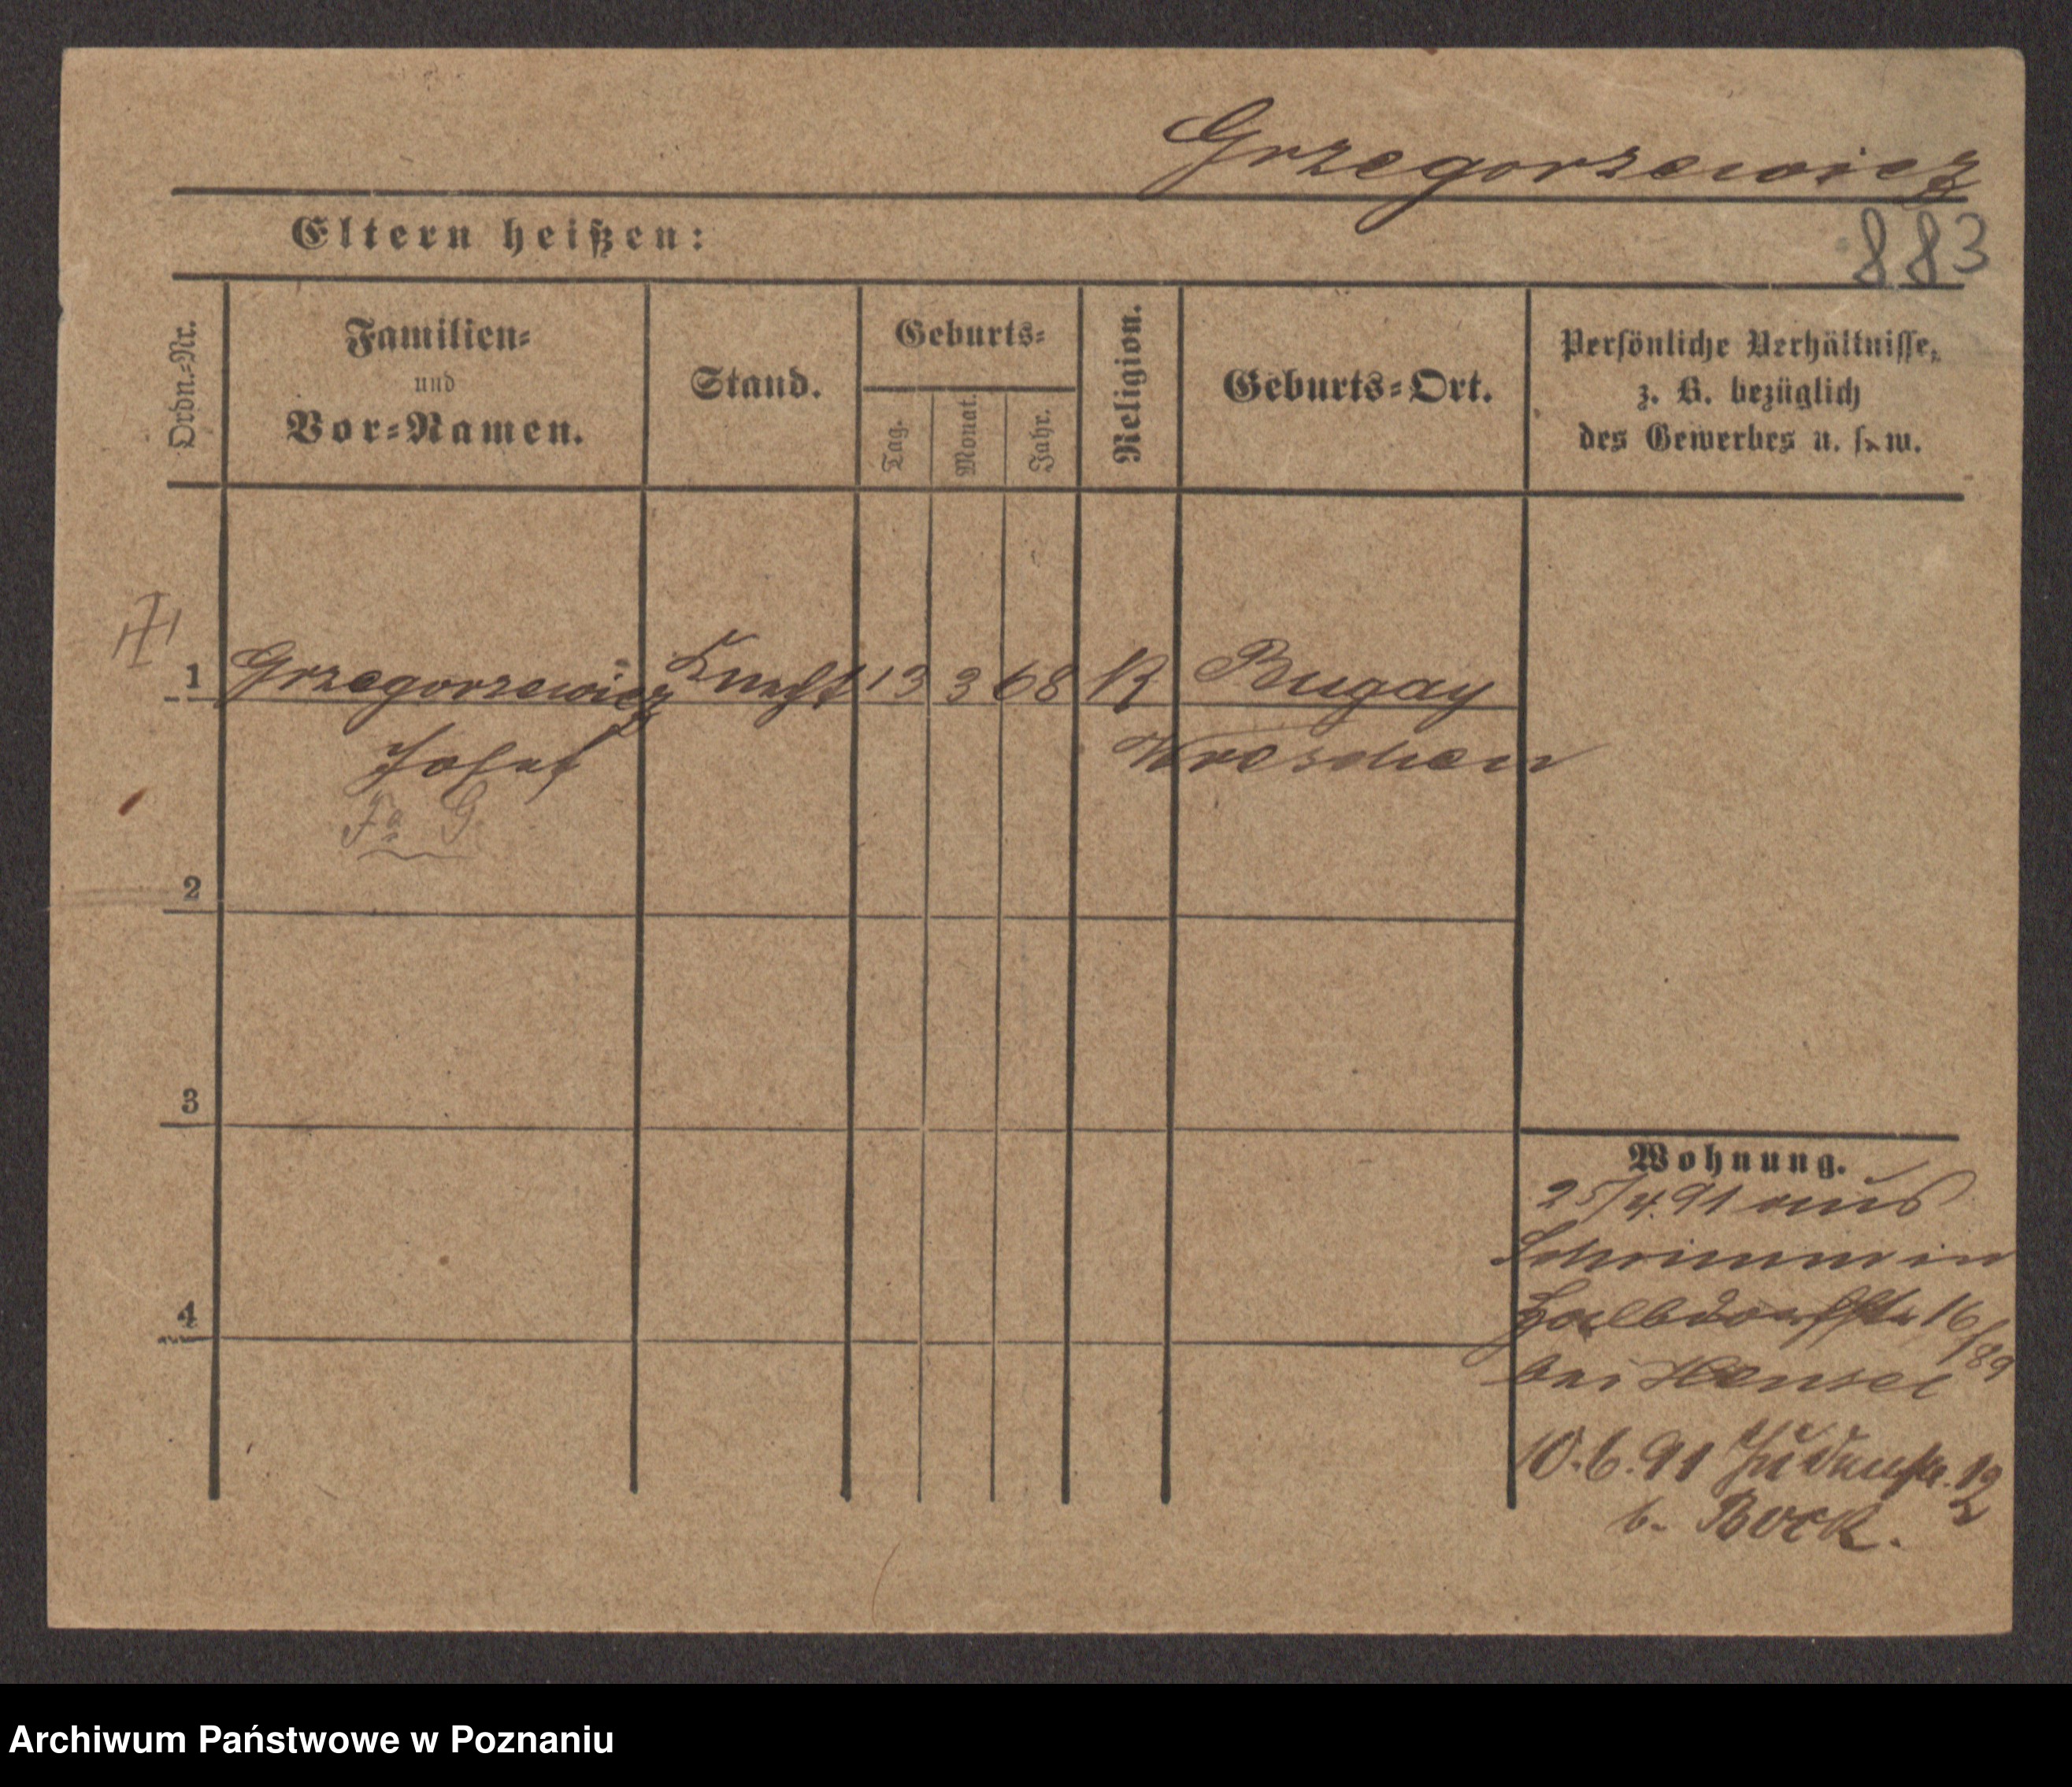 Grzegorzewicz
Eltern heißen:
883
Ordn.-Nr.
Familien-
und
Vor-Namen.
Stand.
Geburts-
Tag.
Monat.
Jahr.
Religion.
Geburts-Ort.
Persönliche Verhältnisse,
z. B. bezüglich
des Gewerbes u. s. w.
1 Grzegorzewicz Knecht 13 3 68 K Bugay
Josef Wreschen
Fa G
2
3
4
Wohnung.
25/4.91 aus
Schrimm in
Halbdorfstr 16/189
bei Hensel
10.6.91 Judenstr. 12
b. Bock.
Archiwum Państwowe w Poznaniu